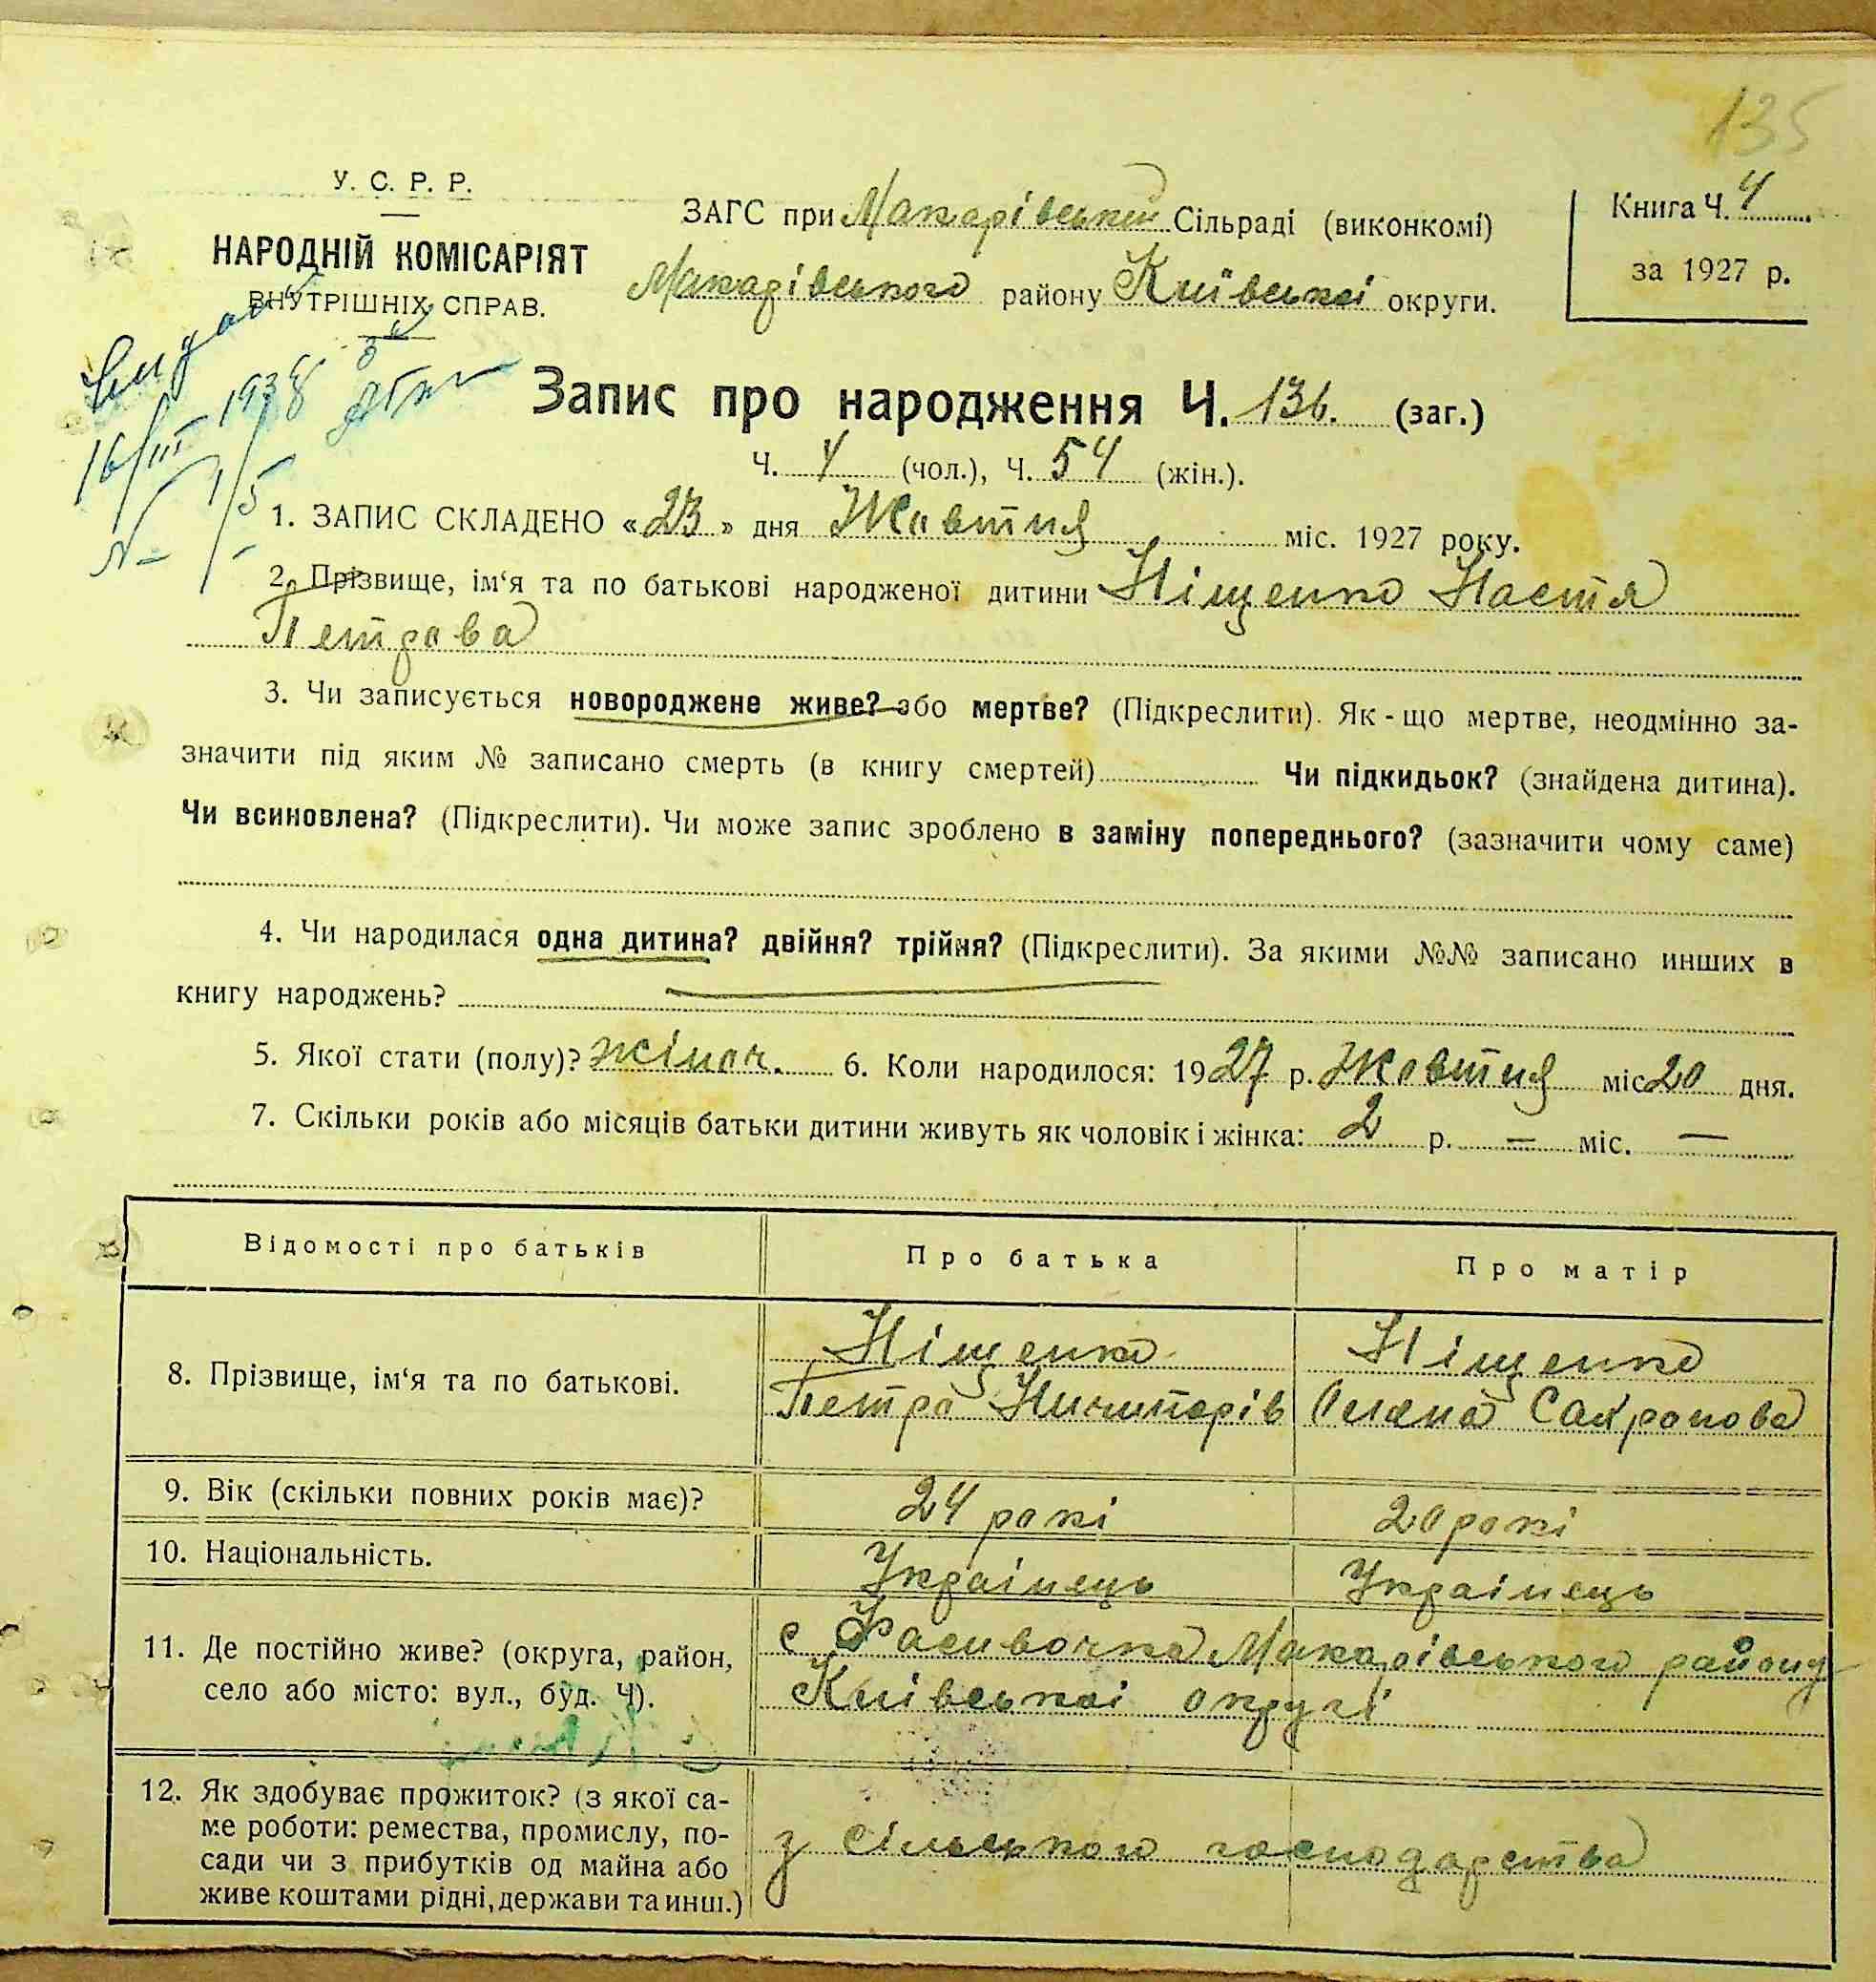 135
У. С. Р. Р.
НАРОДНІЙ КОМІСАРІЯТ
ВНУТРІШНІХ СПРАВ.
ЗАГС при Макарівській Сільраді (виконкомі)
Макарівського району Київської округи.
Книга Ч. 4
за 1927 р.
16/III 1938
Запис про народження Ч. 136. (заг.)
Ч. (чол.), Ч. 54 (жін.).
1. ЗАПИС СКЛАДЕНО «23» дня Жовтня міс. 1927 року.
2. Прізвище, ім‘я та по батькові народженої дитини Ніщенко Настя
Петрова
3. Чи записується новороджене живе? або мертве? (Підкреслити). Як-що мертве, неодмінно за-
значити під яким № записано смерть (в книгу смертей) Чи підкидьок? (знайдена дитина).
Чи всиновлена? (Підкреслити). Чи може запис зроблено в заміну попереднього? (зазначити чому саме)
4. Чи народилася одна дитина? двійня? трійня? (Підкреслити). За якими №№ записано инших в
книгу народжень?
5. Якої стати (полу)? жіноч. 6. Коли народилося: 1927 р. Жовтня міс 20 дня.
7. Скільки років або місяців батьки дитини живуть як чоловік і жінка: 2 р. — міс. —
Відомості про батьків Про батька Про матір
8. Прізвище, ім‘я та по батькові. Ніщенко Ніщенко
Петро Ничипорів Сахронова
9. Вік (скільки повних років має)? 24 рокі 20 рокі
10. Національність. Украінець Украінець
11. Де постійно живе? (округа, район,
село або місто: вул., буд. Ч).
с Фасивочка Макарівського району
Київськоі округі
12. Як здобуває прожиток? (з якої са-
ме роботи: ремества, промислу, по-
сади чи з прибутків од майна або
живе коштами рідні, держави та инш.)
з сільського господарства